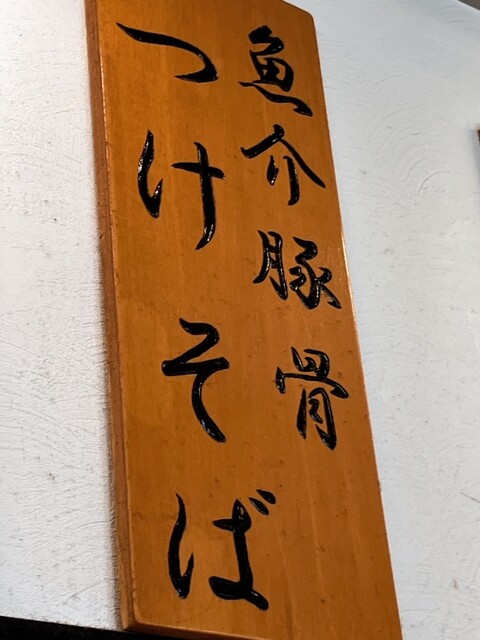 魚介豚骨
つけそば